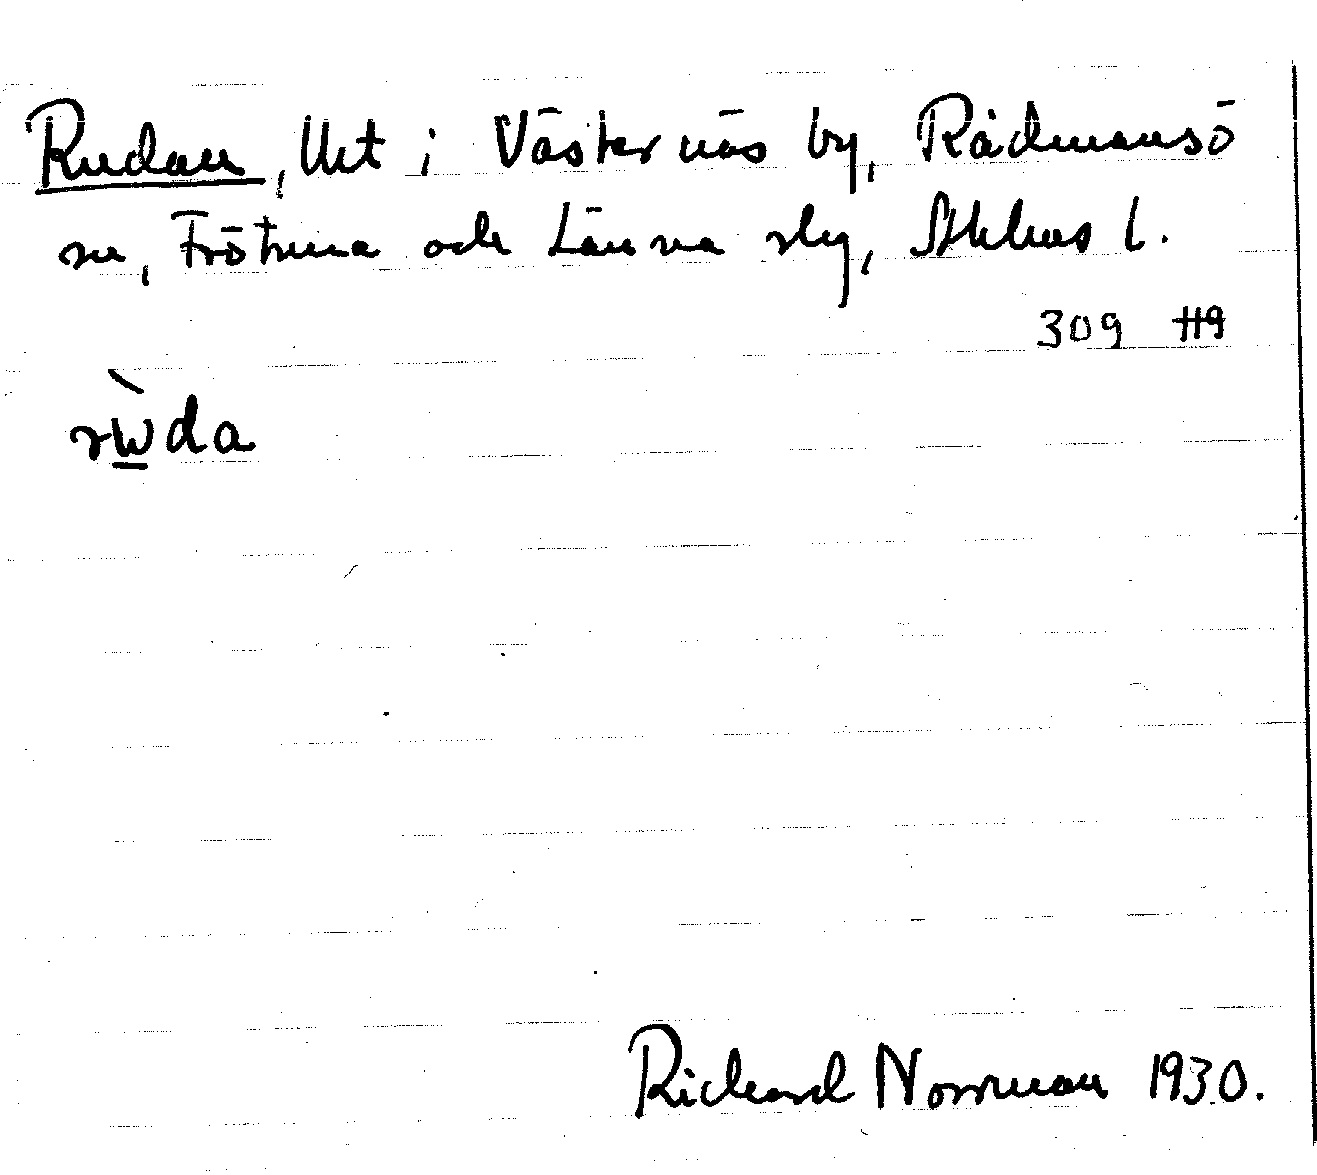 Rudan, Urt i Västernäs by, Rådmansö
sn, Frötuna och Länna slg, Sthlms l.
309 H9
rẁda
Richard Norrman 1930.